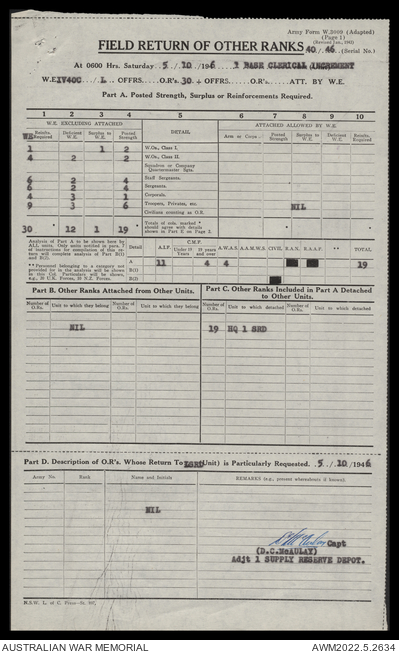 Army Form W.3009 (Adapted)
(Page 1)
FIELD RETURN OF OTHER RANKS 40/46 (Serial No.)
At 0600 Hrs. Saturday 5/10/1946 1 BASE CLERICAL INCREMENT
W.E. IV40C / 1 OFFRS. O.R's. 30 + OFFRS. O.R's. ATT. BY W.E.
Part A. Posted Strength, Surplus or Reinforcements Required.
1 2 3 4 5 6 7 8 9 10
W.E. EXCLUDING ATTACHED DETAIL ATTACHED ALLOWED BY W.E.
WE Reinfts. Required Deficient W.E. Surplus to W.E. Posted Strength Arm or Corps Posted Strength Surplus to W.E. Deficient W.E. Reinfts. Required
1 1 2 W.Os., Class I.
4 2 2 W.Os., Class II.
Squadron or Company Quartermaster Sgts.
6 2 4 Staff Sergeants.
6 2 4 Sergeants.
4 3 1 Corporals.
9 3 6 Troopers, Privates, etc. NIL
Civilians counting as O.R.
30 * 12 1 19 * Totals of cols. marked * should agree with details shown in Part E on Page 2.
Analysis of Part A to be shown here by ALL Units. Only units notified in para. 7 of instructions for compilation of this return will complete analysis of Part B(i) and B(ii).
** Personnel belonging to a category not provided for in the analysis will be shown in this Col. Particulars will be shown, e.g., 20 U.K. Forces, 20 N.Z. Forces.
Detail A.I.F. C.M.F. Under 19 Years 19 years and over A.W.A.S. A.A.M.W.S. CIVIL. R.A.N. R.A.A.F. ** TOTAL
A 11 4 4 19
B(i)
B(ii)
Part B. Other Ranks Attached from Other Units.
Number of O.Rs. Unit to which they belong Number of O.Rs. Unit to which they belong
NIL
Part C. Other Ranks Included in Part A Detached to Other Units.
Number of O.Rs. Unit to which detached Number of O.Rs. Unit to which detached
19 HQ 1 SRD
Part D. Description of O.R's. Whose Return To (Unit) is Particularly Requested. 5/10/1946
Army No. Rank Name and Initials REMARKS (e.g., present whereabouts if known).
NIL
Capt
(D.C. McAULAY)
Adjt 1 SUPPLY RESERVE DEPOT.
AUSTRALIAN WAR MEMORIAL AWM2022.5.2634